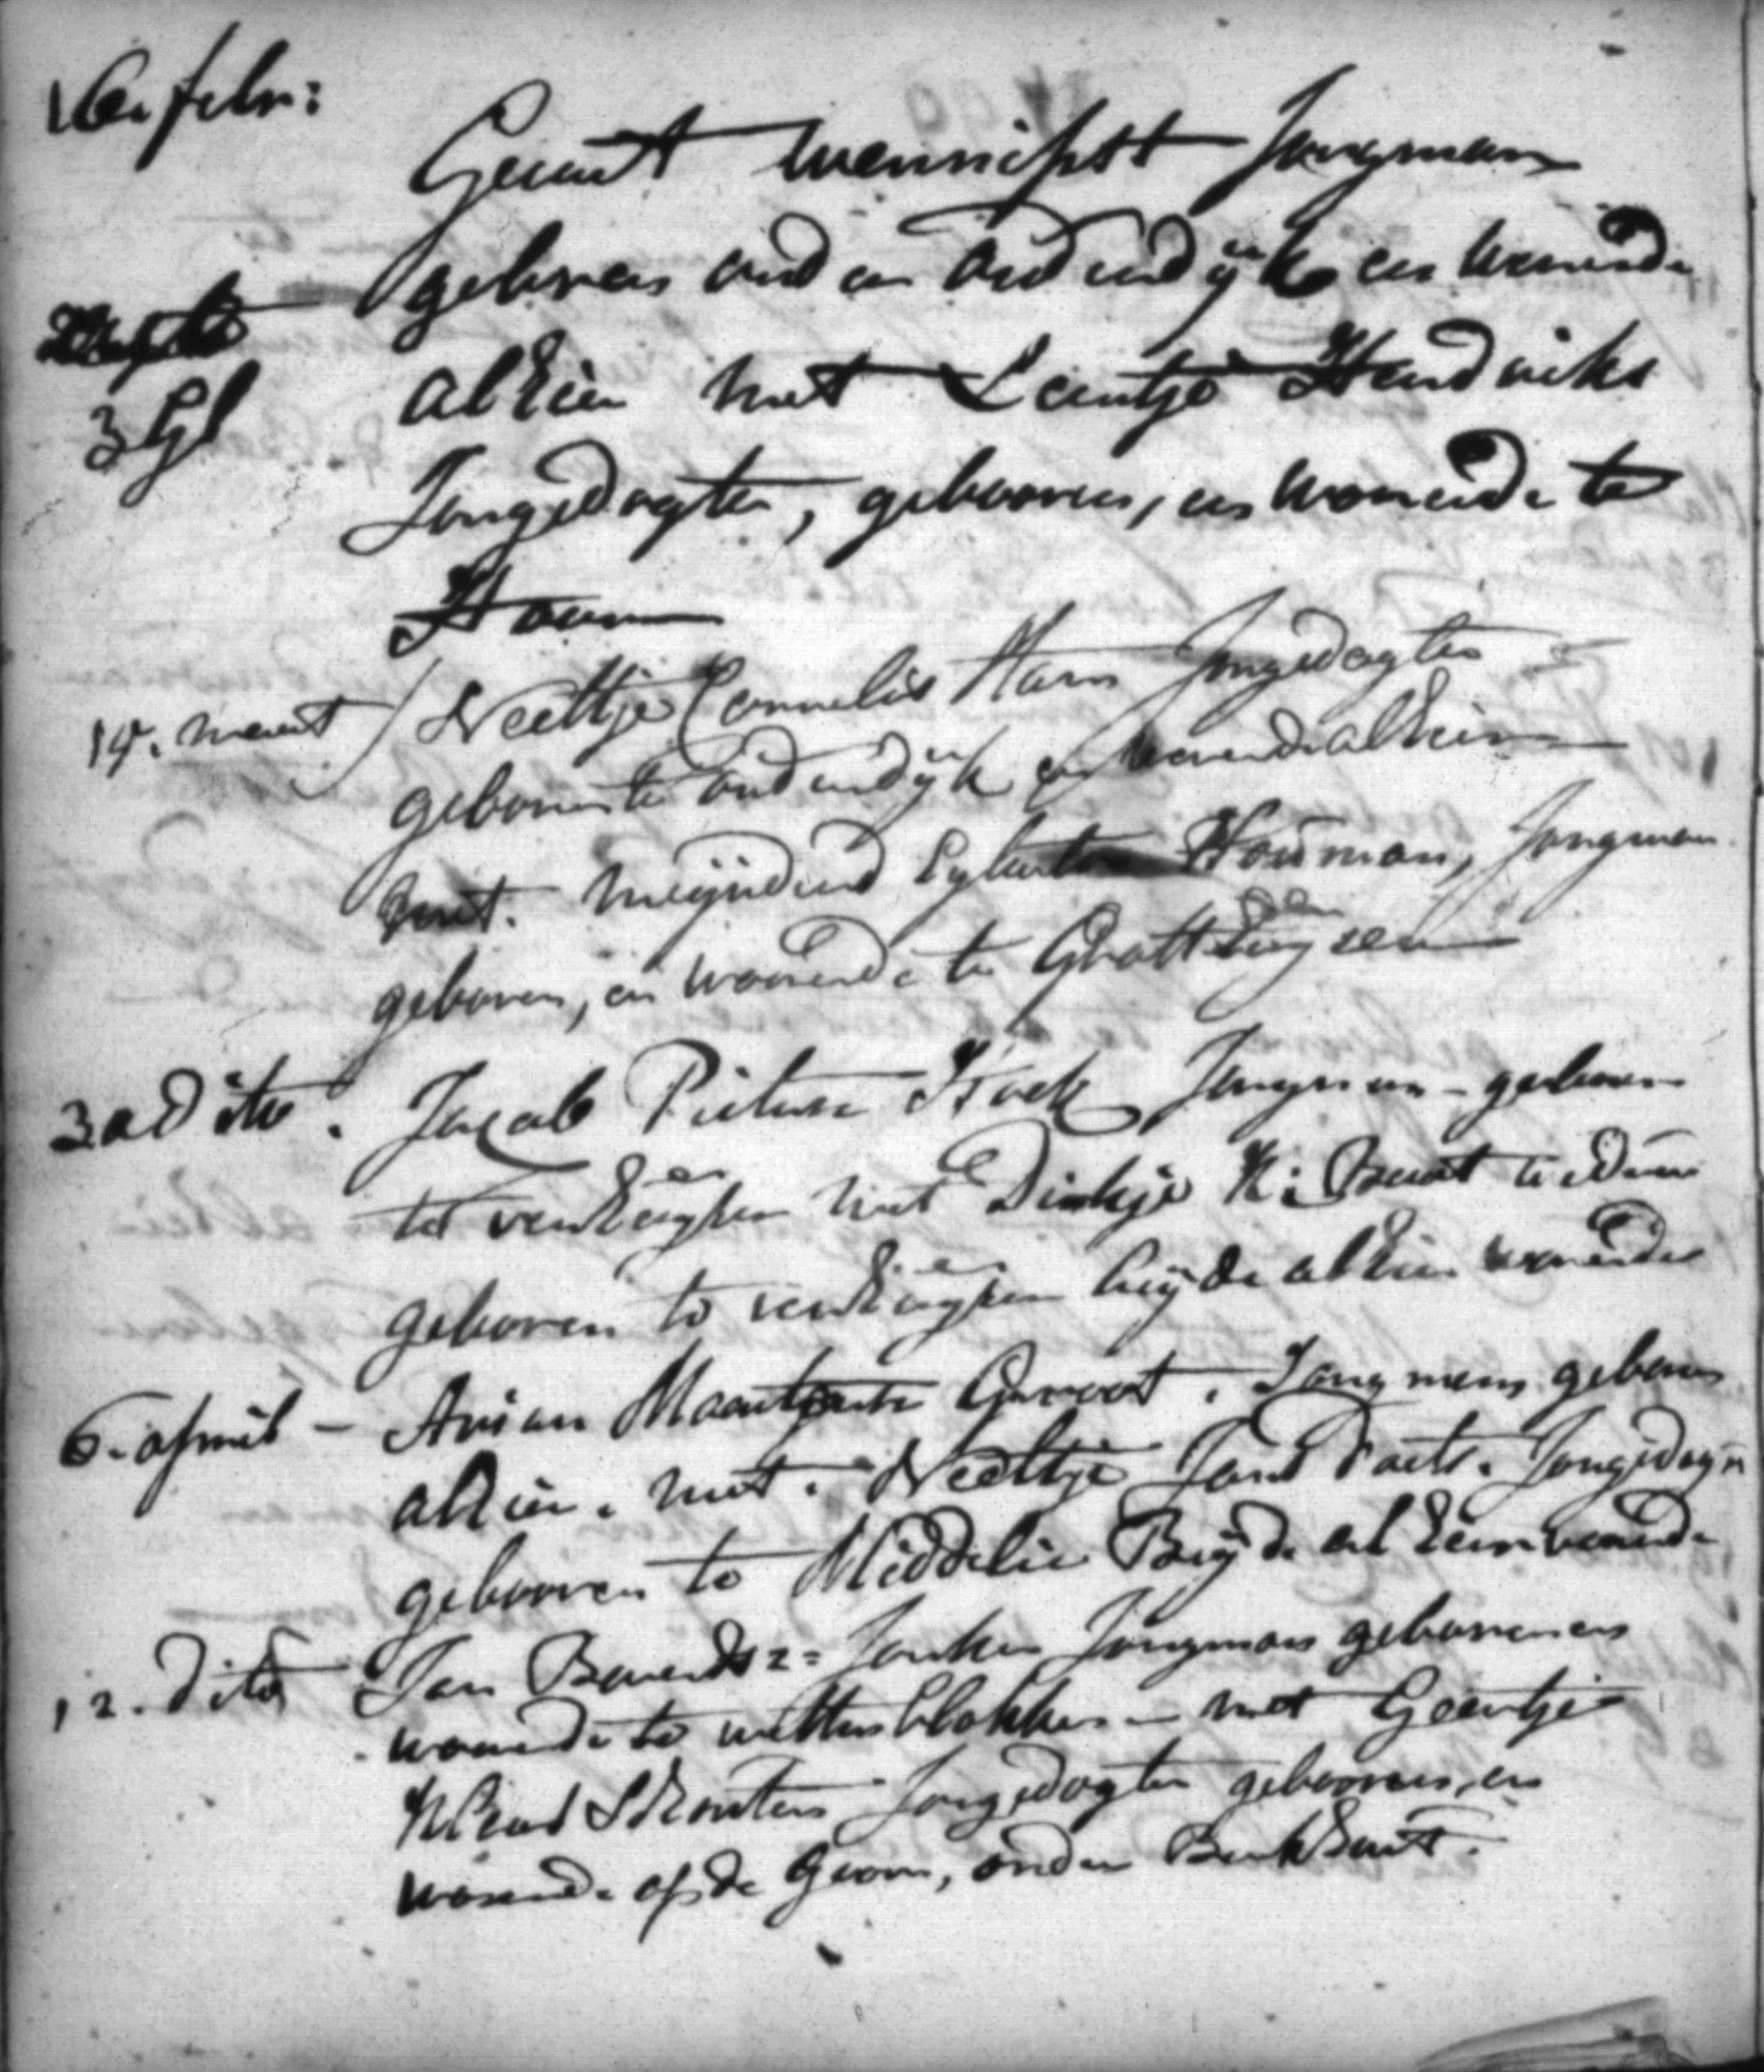 16. febr:
Geurt wenniphtt Jongman
gebooren onder oudendijk en wonende
3 Gl
alhier met Leentje Hendriks
Jongedogter, gebooren, en wonende te
Hoorn
14. meert Neeltje Cornelis Harn Jongedogter
geboren te oudendijk en wonende alhier
met. meijndert Egberts Houman, Jongman
geboren, en woonende te Groatthuysen
30 Dito. Jacob Pieterse Hoek Jongman - geboren
te venhuysen met Dirkje K: Beert
geboren te venhuysen beyde alhier wonende
6. april - Arian Maertense Groot. Jongman geboren
alhier. met. Neeltje Jans Jongedogr
gebooren te Middelie Beyde alhier wonende
12. Dito Jan Barendsz= Jonker Jongman gebooren en
woonende te westerblokker - met Geertje
Klaas Schouten Jongedogter gebooren, en
wonende op de Goorn, onder Berkhout.